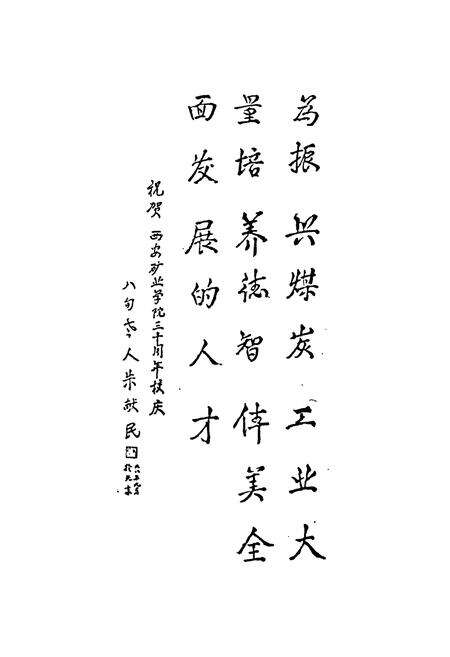 为振兴煤炭工业大
量培养德智体美全
面发展的人才
祝贺西安矿业学院三十周年校庆
八旬老人柴献民